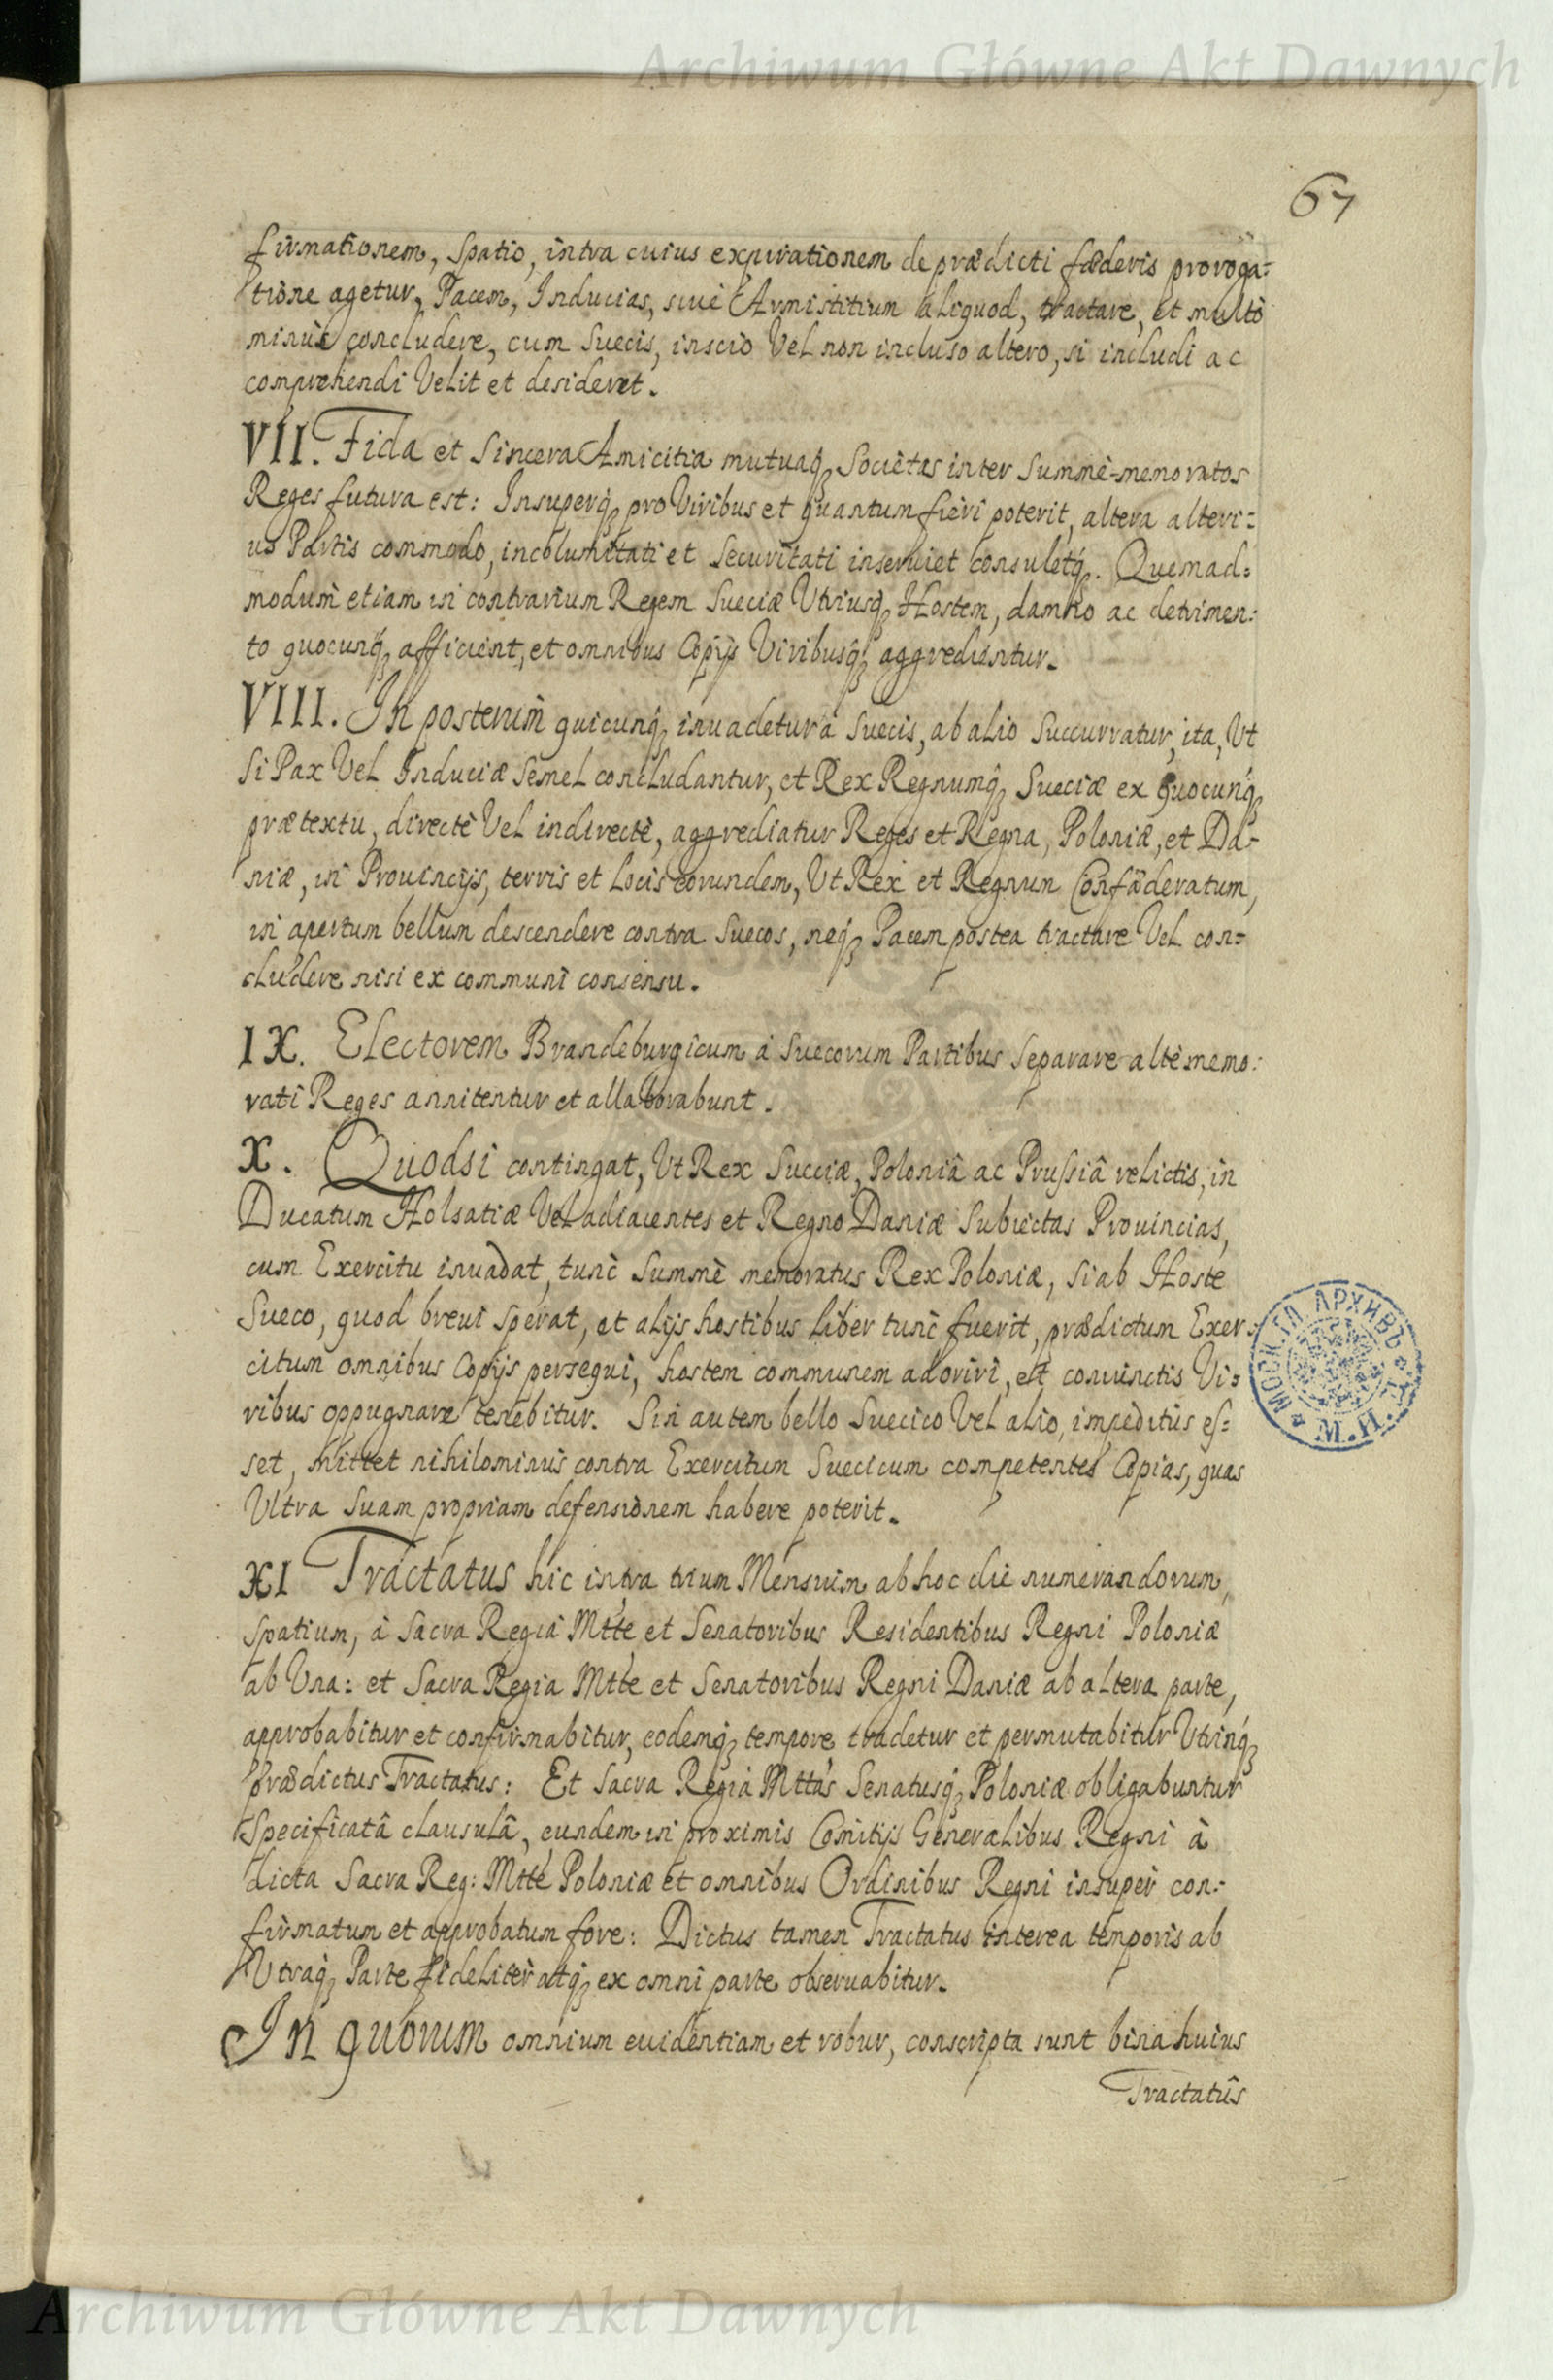 Archiwum Główne Akt Dawnych
67
firmationem, spatio, intra cuius expirationem de prædicti fœderis proroga:
tione agetur, Pacem, Inducias, siuè Armistitium aliquod, tractare, et multò
minùs concludere, cum Suecis, inscio Vel non incluso altero, si includi ac
comprehendi Velit et desideret.
VII. Fida et Sincera Amicitia mutuaq; Societas inter Summè-memoratos
Reges futura est: Insuperq; pro Viribus et quantum fieri poterit, altera alteri:
us Partis commodo, incolumitati et Securitati inseruiet consuletq;. Quemad:
modum etiam in contrarium Regem Sueciæ Vtriusq; Hostem, damno ac detrimen:
to quocunq; afficient, et omnibus Copijs Viribusq; aggredientur.
VIII. In posterum quicunq; inuadetur à Suecis, ab alio Succurratur, ita, Vt
Si Pax Vel Induciæ Semel concludantur, et Rex Regnumq; Sueciæ ex quocunq;
prætextu, directè Vel indirectè, aggrediatur Reges et Regna, Poloniæ, et Da-
niæ, in Prouincijs, terris et Locis eorundem, Vt Rex et Regnum Confœderatum,
in apertum bellum descendere contra Suecos, neq; Pacem postea tractare Vel con=
cludere nisi ex communi consensu.
IX. Electorem Brandeburgicum à Suecorum Partibus Separare altè memo:
rati Reges annitentur et allaborabunt.
X. Quodsi contingat, Vt Rex Sueciæ, Poloniâ ac Prussiâ relictis, in
Ducatum Holsatiæ Vel adiacentes et Regno Daniæ Subiectas Prouincias,
cum Exercitu inuadat, tunc Summè memoratus Rex Poloniæ, Si ab Hoste
Sueco, quod breui Sperat, et alijs hostibus liber tunc fuerit, prædictum Exer:
citum omnibus Copijs persequi, hostem communem adoriri, et coniunctis Vi:
ribus oppugnare tenebitur. Sin autem bello Suecico Vel alio, impeditus es=
set, mittet nihilominus contra Exercitum Suecicum competentes Copias, quas
Vltra Suam propriam defensionem habere poterit.
XI Tractatus hic intra trium Mensium ab hoc die numerandorum,
Spatium, à Sacra Regia Mtte et Senatoribus Residentibus Regni Poloniæ
ab Vna: et Sacra Regia Mtte et Senatoribus Regni Daniæ ab altera parte,
approbabitur et confirmabitur, eodemq; tempore tradetur et permutabitur Vtrinq;
prædictus Tractatus: Et Sacra Regia Mttas Senatusq; Poloniæ obligabuntur
Specificatâ clausulâ, eundem in proximis Comitijs Generalibus Regni à
dicta Sacra Reg: Mtte Poloniæ et omnibus Ordinibus Regni insuper con:
firmatum et approbatum fore: Dictus tamen Tractatus interea temporis ab
Vtraq; Parte fideliter atq; ex omni parte obseruabitur.
In quorum omnium euidentiam et robur, conscripta sunt bina huius
Tractatûs
МОСК. ГЛ. АРХИВЪ
М. И. Д.
Archiwum Główne Akt Dawnych